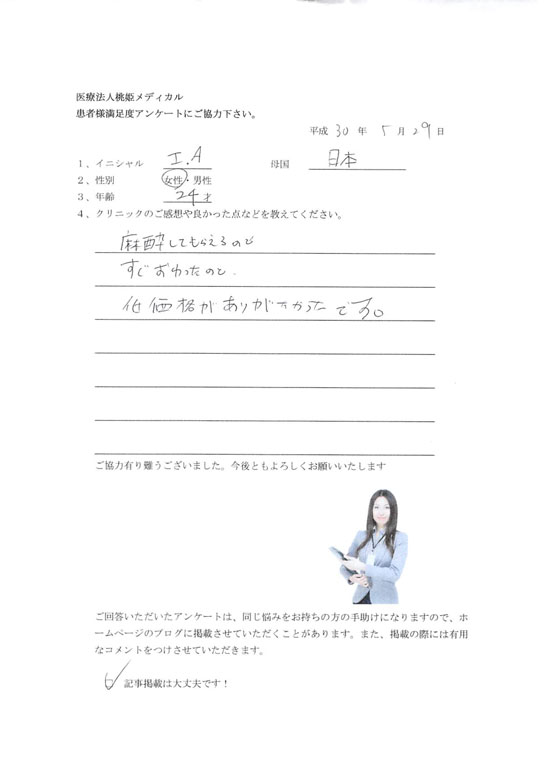 医療法人桃姫メディカル
患者様満足度アンケートにご協力下さい。
平成 30 年 5 月 29 日
1、イニシャル I.A 母国 日本
2、性別 女性・男性
3、年齢 24才
4、クリニックのご感想や良かった点などを教えてください。
麻酔してもらえるので
すぐおわったので.
低価格がありがたかったです。
ご協力有り難うございました。今後ともよろしくお願いいたします
ご回答いただいたアンケートは、同じ悩みをお持ちの方の手助けになりますので、ホ
ームページのブログに掲載させていただくことがあります。また、掲載の際には有用
なコメントをつけさせていただきます。
記事掲載は大丈夫です！